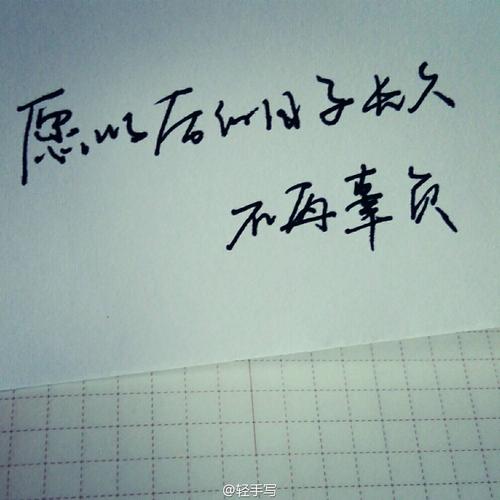 愿以后的日子长久
不再辜负
@轻手写